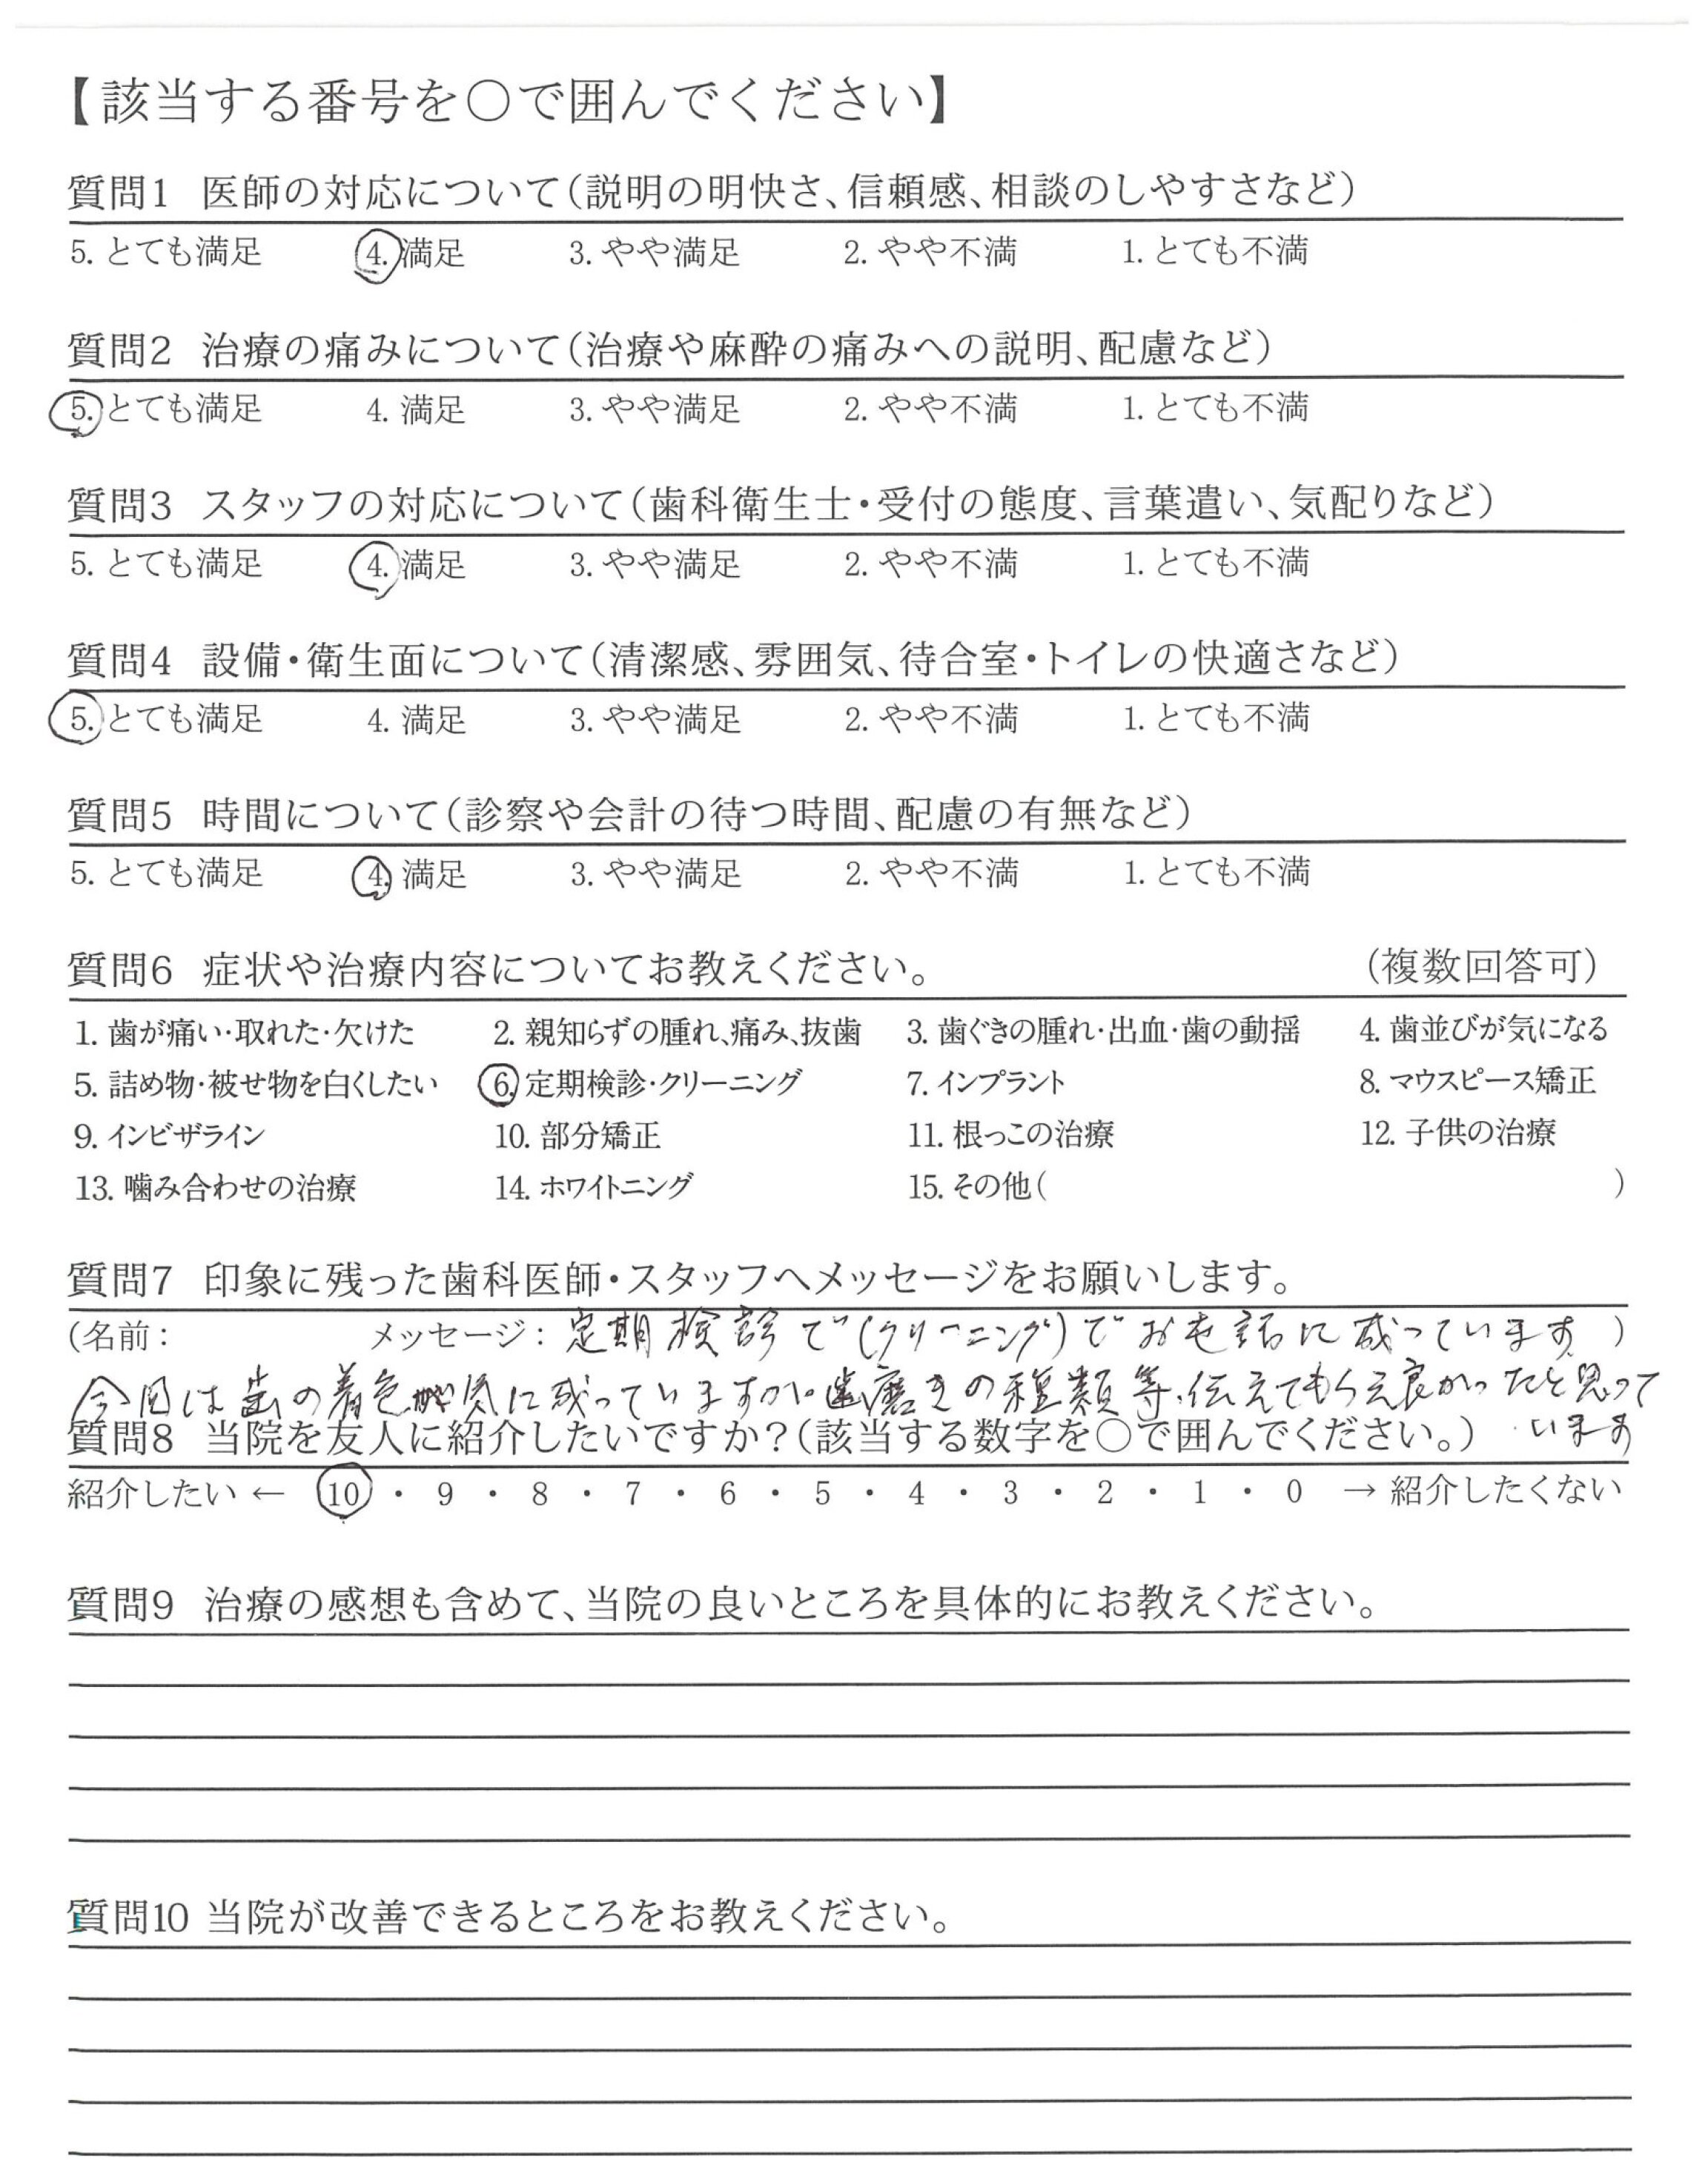 【該当する番号を〇で囲んでください】
質問1 医師の対応について(説明の明快さ、信頼感、相談のしやすさなど)
5. とても満足 4. 満足 3. やや満足 2. やや不満 1. とても不満
質問2 治療の痛みについて(治療や麻酔の痛みへの説明、配慮など)
5. とても満足 4. 満足 3. やや満足 2. やや不満 1. とても不満
質問3 スタッフの対応について(歯科衛生士・受付の態度、言葉遣い、気配りなど)
5. とても満足 4. 満足 3. やや満足 2. やや不満 1. とても不満
質問4 設備・衛生面について(清潔感、雰囲気、待合室・トイレの快適さなど)
5. とても満足 4. 満足 3. やや満足 2. やや不満 1. とても不満
質問5 時間について(診察や会計の待つ時間、配慮の有無など)
5. とても満足 4. 満足 3. やや満足 2. やや不満 1. とても不満
質問6 症状や治療内容についてお教えください。 (複数回答可)
1. 歯が痛い・取れた・欠けた 2. 親知らずの腫れ、痛み、抜歯 3. 歯ぐきの腫れ・出血・歯の動揺 4. 歯並びが気になる
5. 詰め物・被せ物を白くしたい 6. 定期検診・クリーニング 7. インプラント 8. マウスピース矯正
9. インビザライン 10. 部分矯正 11. 根っこの治療 12. 子供の治療
13. 噛み合わせの治療 14. ホワイトニング 15. その他( )
質問7 印象に残った歯科医師・スタッフへメッセージをお願いします。
(名前: メッセージ: 定期検診で(クリーニング)でお世話に成っています。)
今回は歯の着色が気に成っていますが。歯磨きの種類等、伝えてもらえ良かったと思って
質問8 当院を友人に紹介したいですか?(該当する数字を〇で囲んでください。) います
紹介したい ← 10 ・ 9 ・ 8 ・ 7 ・ 6 ・ 5 ・ 4 ・ 3 ・ 2 ・ 1 ・ 0 → 紹介したくない
質問9 治療の感想も含めて、当院の良いところを具体的にお教えください。
質問10 当院が改善できるところをお教えください。